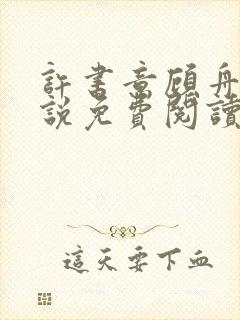 許書意顧舟
說免費閱讀
這天要下血